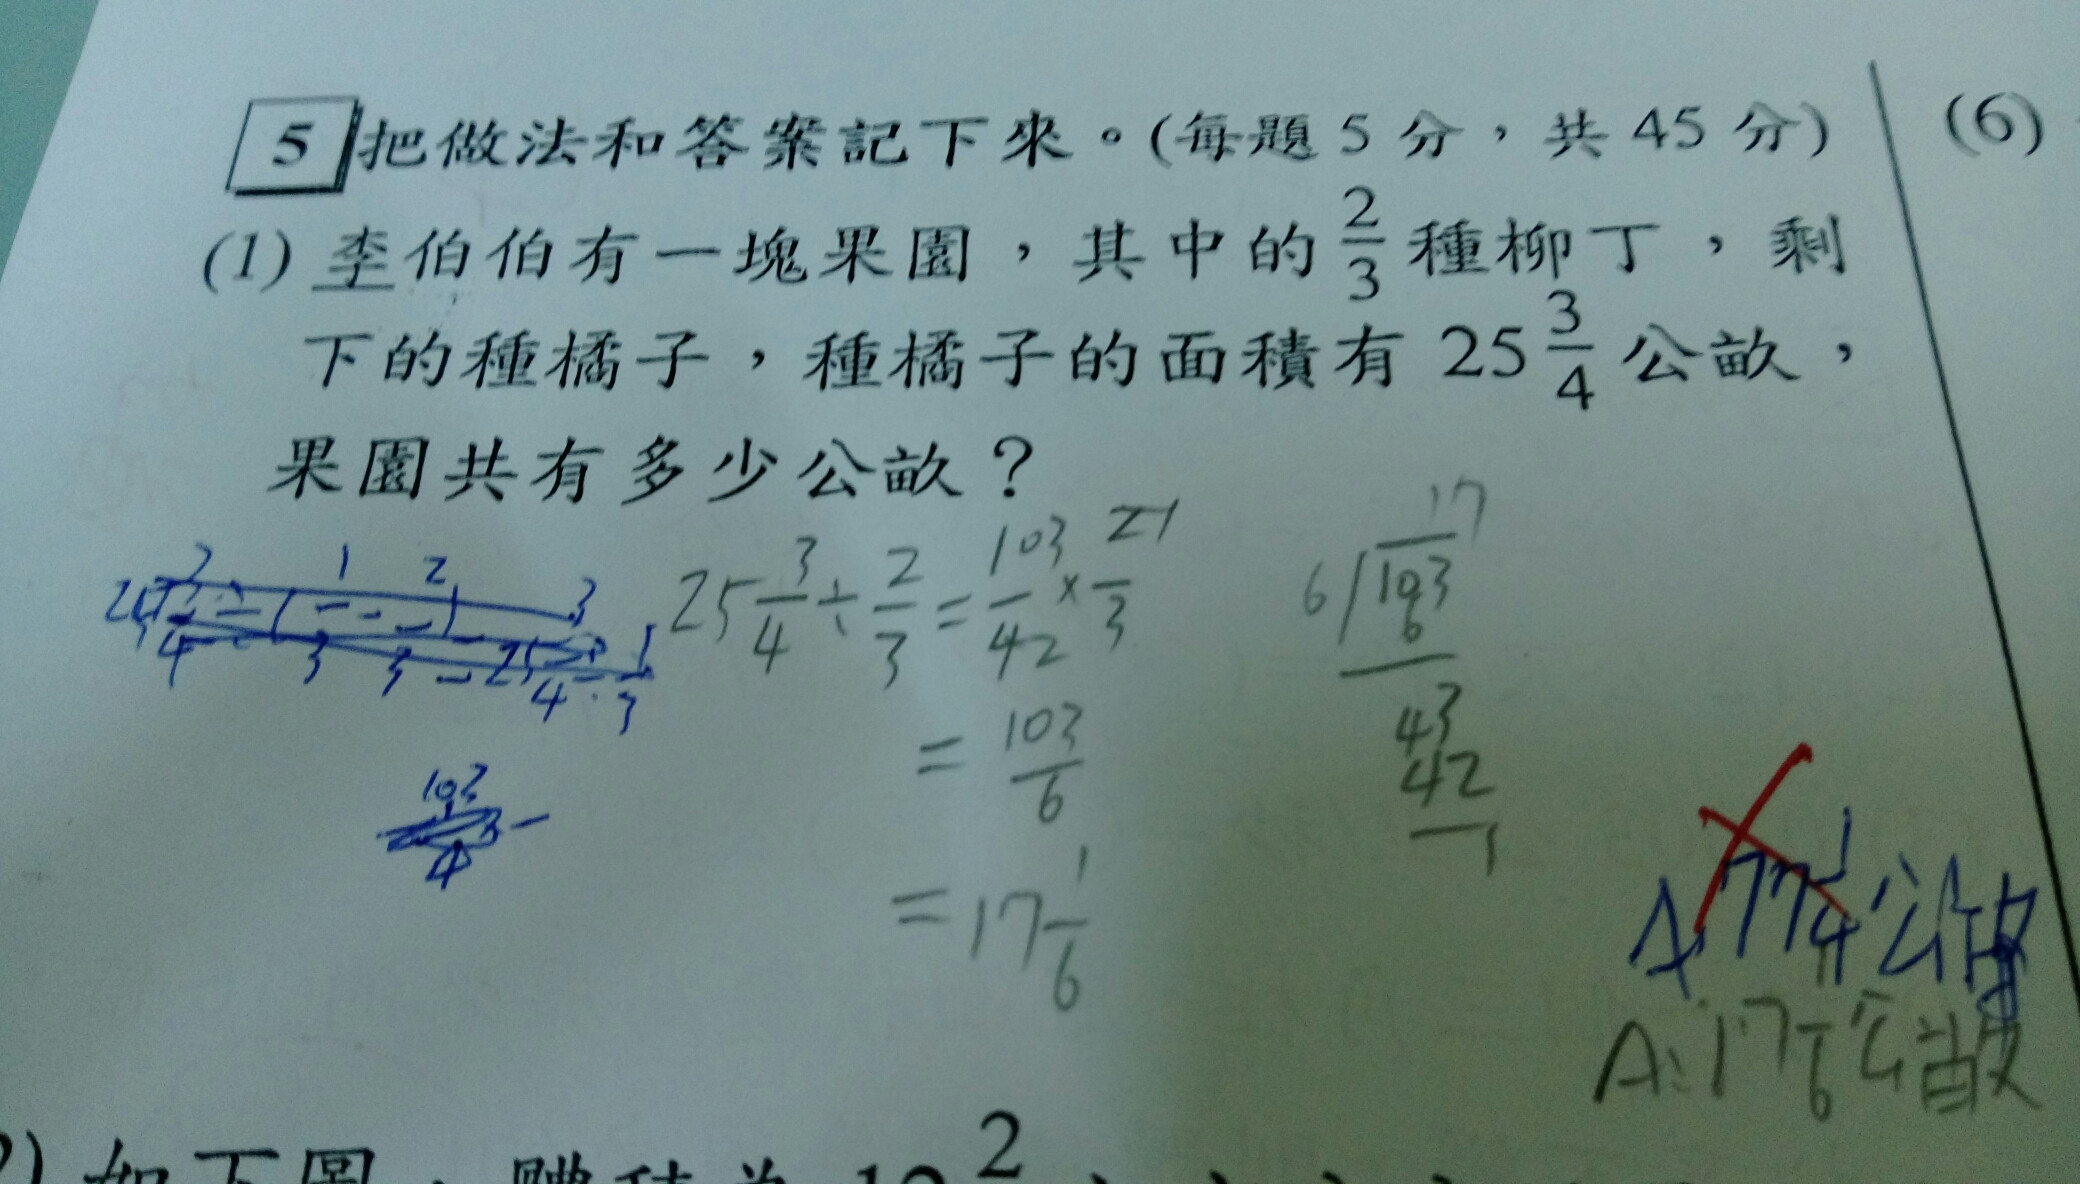 5 把做法和答案記下來。(每題 5 分，共 45 分)
(6)
(1) 李伯伯有一塊果園，其中的 2/3 種柳丁，剩
下的種橘子，種橘子的面積有 25 3/4 公畝，
果園共有多少公畝？
25 3/4 ÷ 2/3 = 103/42 × 21/3
= 103/6
= 17 1/6
17
6 103
6
43
42
1
103
4
A: 77 1/4 公畝
A: 17 1/6 公畝
如下圖，體積為 2